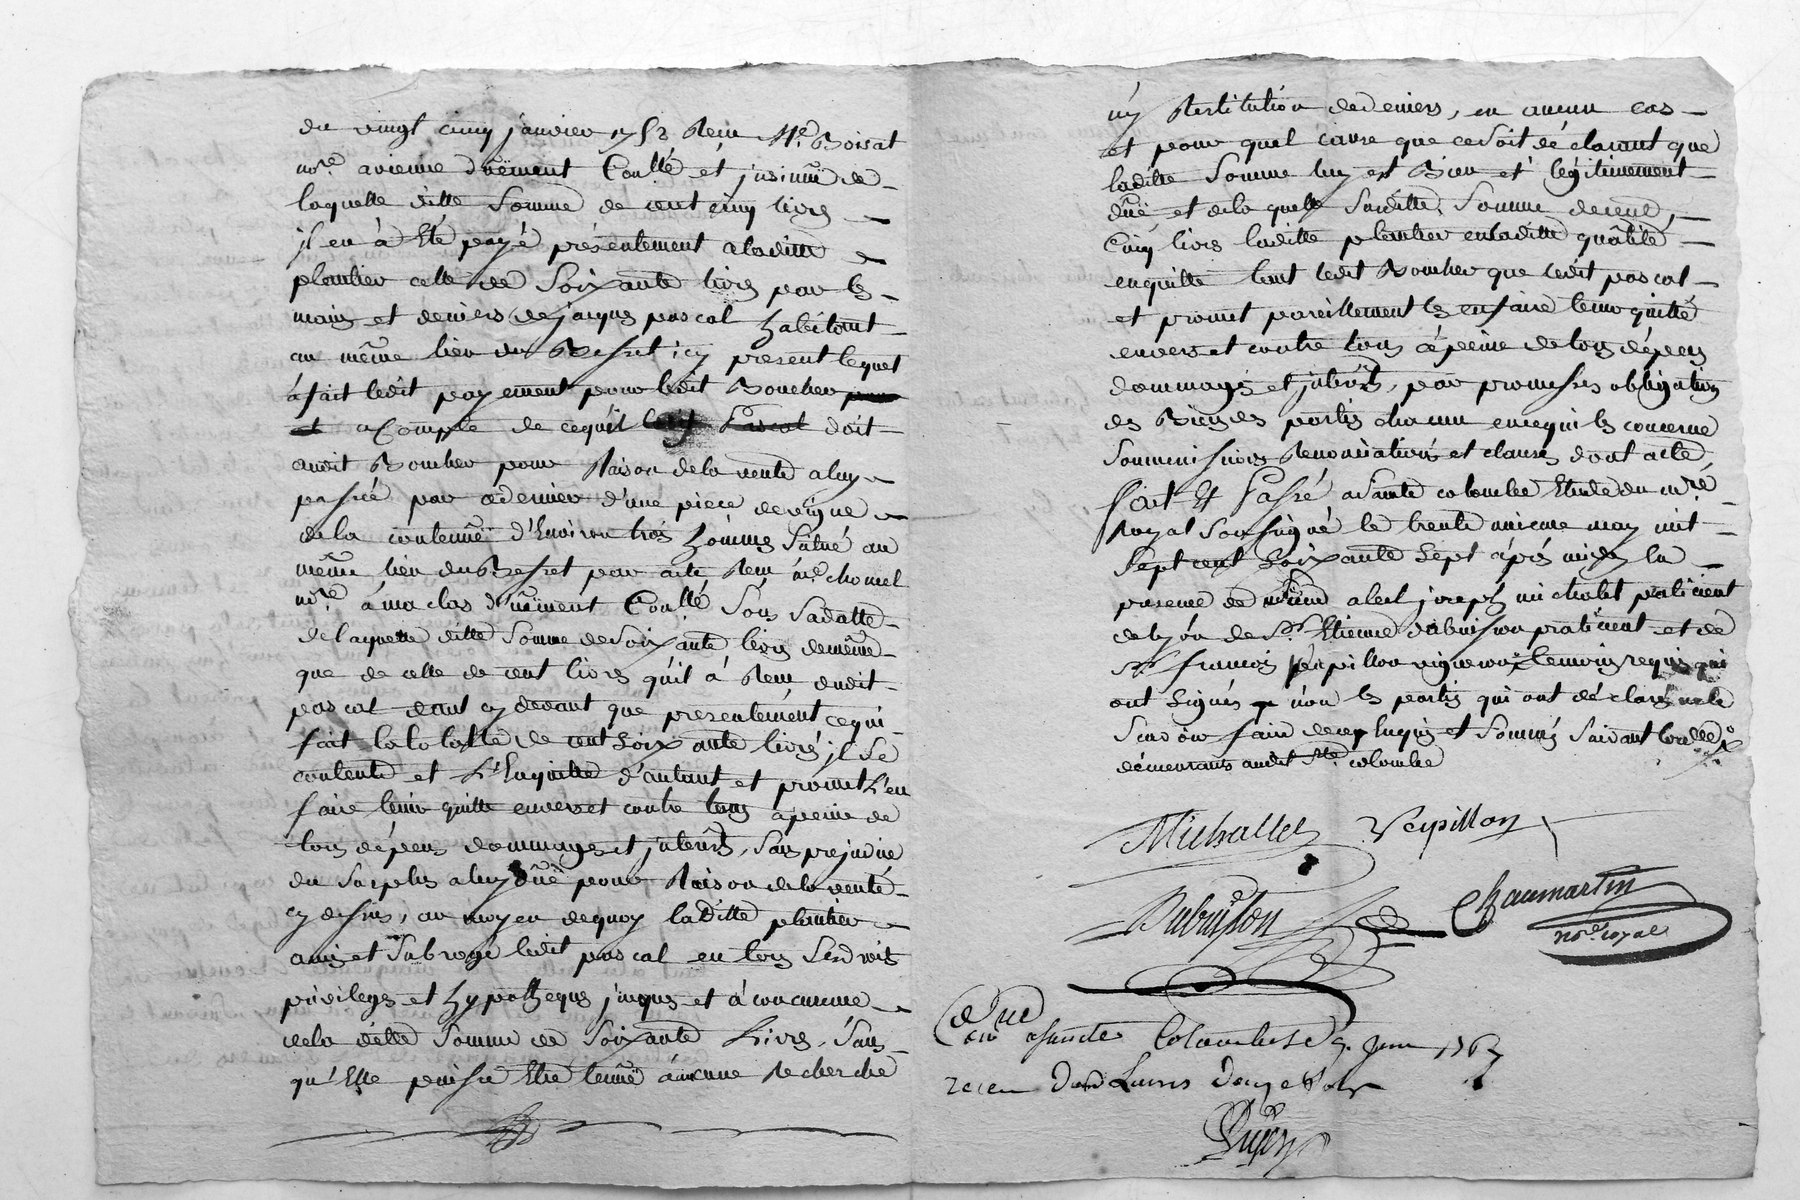 du vingt cinq janvier 1753 Reçu Me. Boirat
nore. a vienne düement Conllé et jnsinüé de
laquelle ditte Somme de cent cinq livres
jl en à Eté payé présentement a laditte
plantier celle de Soixante livres par les
mains et deniers de jacques pascal habitant
au même lieu du Besset icy present lequel
à fait ledit payement pour ledit Boucher
a Compte de cequ'il doit
audit Boucher pour Raison de la vente a luy
passée par ce dernier d'une piece de vigne
de la contenüe d'Environ trois hômmes Situé au
même lieu du Besset par acte Reçu me. chomel
nore. à maclas düement Conllé Sous Sa datte
de laquelle ditte Somme de Soixante livres de même
que de celle de cent livres qu'il à Reçu dudit
pascal avant cy devant que présentement ce qui
fait la totallité de cent Soixante livres jl Se
contente et L'Enquitte d'autant et promet L'en
faire tenir quitte envers et contre tous à peine de
tous dépens dommages et jnterêts, Sans prejudice
du Surplus a luy dûë pour Raison de la vente
cy dessus, au moyen de quoy laditte plantier
a mis et Subrogé ledit pascal en tous Ses droits
privileges et hypotheques jusques et à concurrence
de la ditte Somme de Soixante Livres, Sans
qu'Elle puisse Etre tenuë à aucune Recherche
ny Restitution de deniers, en aucun cas
et pour quel cause que ce Soit déclarant que
laditte Somme luy est Bien et légitimement
dûë et de la quelle Susditte Somme de cent
Cinq livres laditte plantier en laditte qualité
enquitte tant ledit Boucher que ledit pascal
et promet pareillement les en faire tenir quitte
envers et contre tous à peine de tous dépens
dommages et jnterêts, par promesses obligation
des Biens des parties chacune en ce qui les concerne
Soummissions Renonciations et clauses dont acte
fait Et Passé a Sainte colombe Etude du nore.
Royal Soussigné le trente unieme may mil
Sept cent Soixante Sept après midy en
presence de albert joseph michalet praticient
de lyon de Sr. Etienne dubuisson praticient et de
Sr. francois vépillon vigneron temoins requis qui
ont Signés et non les parties qui ont déclaré ne le
Sçavoir faire de ce enquis et Sommés Suivant
demeurants audit Ste. colombe
Michallet Vepillon
Dubuisson Chaumartin
nore. royal
a Sainte Colombe le 9. juin 1767
recu